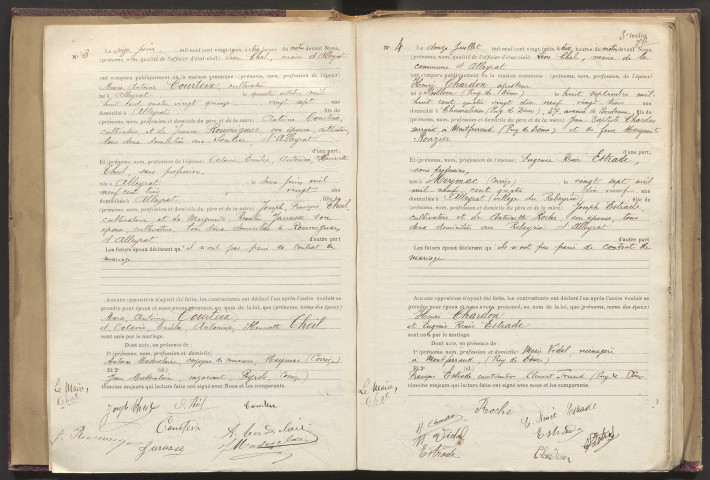 N° 3 Le seize juin mil neuf cent vingt-trois, à dix heures du matin devant Nous,
(prénoms, nom, qualité de l'officier d'état-civil) Léon Chal, maire d'Alleyrat
ont comparu publiquement en la maison commune: (prénoms, nom, profession de l'époux)
Marie Antoine Courteix, cultivateur
né à Alleyrat, le quatre octobre mil
huit cent quatre vingt quinze, vingt sept ans
domicilié à Alleyrat fils de
(prénoms, nom, profession et domicile du père et de la mère) Antoine Courteix,
cultivateur et de Jeanne son épouse, cultivatrice
tous deux domiciliés au d'Alleyrat
d'une part,
Et (prénoms, nom, profession de l'épouse) Octavie Emilie Antoinise Henriette
Cheil, sans profession,
née à Alleyrat, le deux juin mil
neuf cent trois, vingt ans
domiciliée à Alleyrat fille de
(prénoms, nom, profession et domicile du père et de la mère) Joseph François Cheil
cultivateur et de Marguerite Jarasse son
épouse, cultivatrice, tous deux domiciliés à
d'Alleyrat d'autre part
Les futurs époux déclarent qu'il n'ont pas passé de contrat de
mariage
Aucune opposition n'ayant été faite, les contractants ont déclaré l'un après l'autre vouloir se
prendre pour époux et nous avons prononcé, au nom de la loi, que (prénoms, noms des époux)
Marie Antoine Courteix
et Octavie Emilie Antoinise Henriette Cheil
sont unis par le mariage.
Dont acte, en présence de:
1° (prénoms, nom, profession et domicile)
Antoine voyageur de commerce, Meymac (Corrèze)
Et 2° (id.)
Jean négociant, (Corrèze)
témoins majeurs qui lecture faite ont signé avec Nous et les comparants.
Le Maire,
Chal
Courteix
Jarasse
3e feuillet
N° 4 Le douze juillet mil neuf cent vingt-trois, à dix heures du matin devant Nous,
(prénoms, nom, qualité de l'officier d'état-civil) Léon Chal, maire de la
commune d'Alleyrat
ont comparu publiquement en la maison commune: (prénoms, nom, profession de l'époux)
Henri Chardon
né à (Puy de Dôme), le huit septembre mil
huit cent quatre vingt dix neuf, vingt trois ans
domicilié à Chamalières (Puy de Dôme), 27 avenue de Bordeaux fils de
(prénoms, nom, profession et domicile du père et de la mère) Jean Baptiste Chardon
à Montferrand (Puy de Dôme) et de feue Marguerite
d'une part.
Et (prénoms, nom, profession de l'épouse) Eugénie Renée Estrade,
sans profession,
née à Meymac (Corrèze), le vingt sept avril
mil neuf cent quatre, dix neuf ans
domiciliée à Alleyrat village du fille de
(prénoms, nom, profession et domicile du père et de la mère) Joseph Estrade
cultivateur et de Antoinette Roche, son épouse, tous
deux domiciliés au d'Alleyrat
d'autre part
Les futurs époux déclarent qu'ils n'ont pas passé de contrat de
mariage
Aucune opposition n'ayant été faite, les contractants ont déclaré l'un après l'autre vouloir se
prendre pour époux et nous avons prononcé, au nom de la loi, que (prénoms, noms des époux)
Henri Chardon
et Eugénie Renée Estrade
sont unis par le mariage.
Dont acte, en présence de:
1° (prénoms, nom, profession et domicile) Marie Vidal, ménagère
à Montferrand (Puy de Dôme)
Et 2° (id.)
François Estrade Clermont Ferrand (Puy de Dôme)
témoins majeurs qui lecture faite ont signé avec nous et les comparants.
Le Maire,
Chal
Roche
E. Renée Estrade
M Vidal
Estrade
Estrade
Chardon